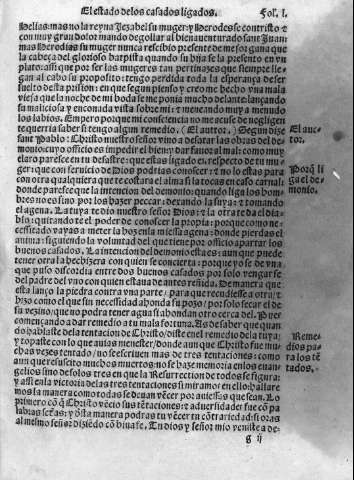 El estado de los casados ligados. Fol. l.
Helias: mas no la reyna Jezabel su muger: y Herodes se contristo ⁊
con muy gran dolor mando degollar al bienauenturado sant Juan:
mas Herodias su muger nunca rescibio presente de mejor gana que
la cabeça del glorioso baptista quando su hija se la presento en vn
plato: assi que por ser las mugeres tan pertinazes que siempre lle-
gan al cabo su proposito: tengo perdida toda la esperança de ser
suelto desta prision: en que segun pienso y creo me hecho vna mala
vieja que la noche de mi boda se me ponia mucho delante lançando
su maliciosa y enconada vista sobre mi: ⁊ meneando muy a menudo
los labios. Empero por que mi consciencia no me acuse de negligen
te querria saber si tengo algun remedio. (El auctor.) Segun dize
sant Pablo: Christo nuestro señor vino a desatar las obras del de-
monio: cuyo officio es impedir el bien: y dar fauor al mal: como muy
claro paresce en tu desastre: que estas ligado en respecto de tu mu-
ger: que con seruicio de Dios podias conoscer: ⁊ no lo estas para
con otra qualquiera que te costara el alma si la tocas en caso carnal:
donde paresce que la intencion del demonio: quando liga los hom-
bres no es sino por los hazer peccar: dexando la suya: ⁊ tomando
el agena. La tuya te dio nuestro señor Dios: ⁊ la otra te da el dia-
blo: quitando te el poder de conoscer la propia: porque como ne-
cessitado vayas a meter la hoz en la miesse agena: donde pierdas el
anima: siguiendo la voluntad del que tiene por officio apartar los
buenos casados. La intencion del demonio es esta: aun que puede
tener otra la hechizera con quien se concierta: porque yo se de vna
que puso discordia entre dos buenos casados por solo vengar se
del padre del vno con quien estaua de antes reñida. De manera que
esta lanço la piedra contra vna parte: para que recudiesse a otra: y
hizo como el que sin necessidad ahonda su pozo: por solo secar el de
su vezino: que no podra tener agua si ahondan otro cerca del. Pues
començando a dar remedio a tu mala fortuna. Es de saber que quan
do hablaste de la tentacion de Christo: diste en el remedio de la tuya:
y topaste con lo que auias menester: donde aun que Christo fue mu-
chas vezes tentado: no se escriuen mas de tres tentaciones: como
aun que resuscito muchos muertos: no se haze memoria en los euan-
gelios sino de solos tres en que la Resurrection de todos se figura:
y assi en la victoria de las tres tentaciones si miramos en ello: hallare
mos la manera como todas se deuan vẽcer por auiessas que sean. Lo
primero cõ q̃ Christo vẽcio sus tẽtaciones: ⁊ aduersidades fue cõ pa
labras sctãs: y õsta manera podras tu vẽcer tu cõtrariedad: si orares
al mesmo señor: diziẽdo cõ Dauid. En dios y señor mio veniste a de-
g ij
El auc-
tor.
Porq̃ li
ga el de-
monio.
Reme-
dios pa
ra los tẽ
tados.